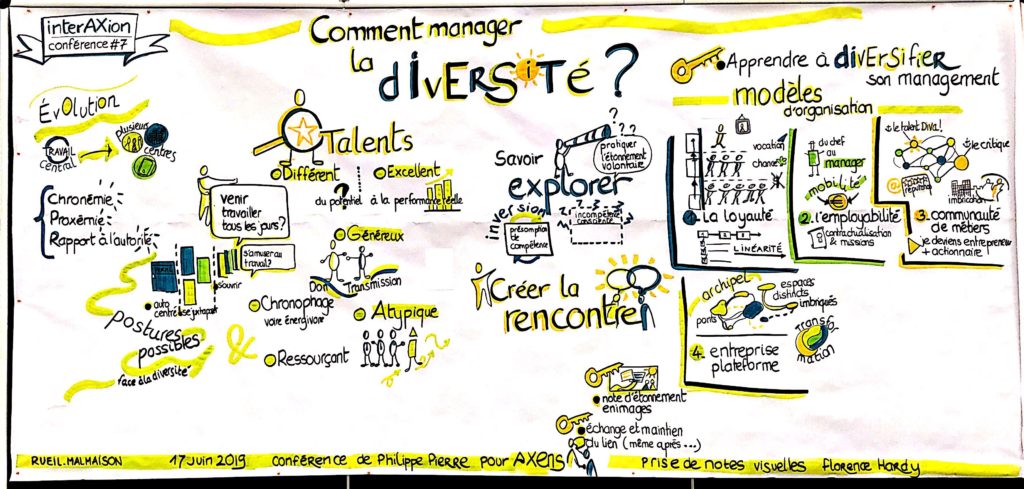 interAXion
conférence #7
Comment manager
la
diVERSiTé ?
Évolution
TRAVAIL
Central
plusieurs
centres
Chronémie
Proxémie
Rapport à l'autorité
venir
travailler
tous les jours ?
s'amuser au
travail ?
s'ouvrir
auto
centré
juxtaposé
postures
possibles
face à la diversité
&
Talents
Différent
du potentiel
?
Excellent
à la performance réelle
Généreux
Don
Transmission
Chronophage
voire énergivore
Atypique
Ressourçant
Savoir
explorer
? ? ?
pratiquer
l'étonnement
volontaire
inversion
présomption
de compétence
incompétence
consciente
Créer la
rencontre
note d'étonnement
en images
échange et maintien
du lien (même après...)
Apprendre à diVERSiFiER
son management
modèles
d'organisation
vocation
chance
1. La loyauté
LINÉARITÉ
du chef
au
manager
mobilité
2. l'employabilité
contractualisation
& missions
le talent Diva !
le critique
réputation
imbrication
3. communauté
de métiers
je deviens entrepreneur
+ actionnaire !
archipel
ponts
espaces
distincts
imbriqués
4. entreprise
plateforme
Transfo
mation
RUEIL.MALMAISON
17 Juin 2019
conférence de Philippe Pierre pour AXENS
Prise de notes visuelles Florence Hardy